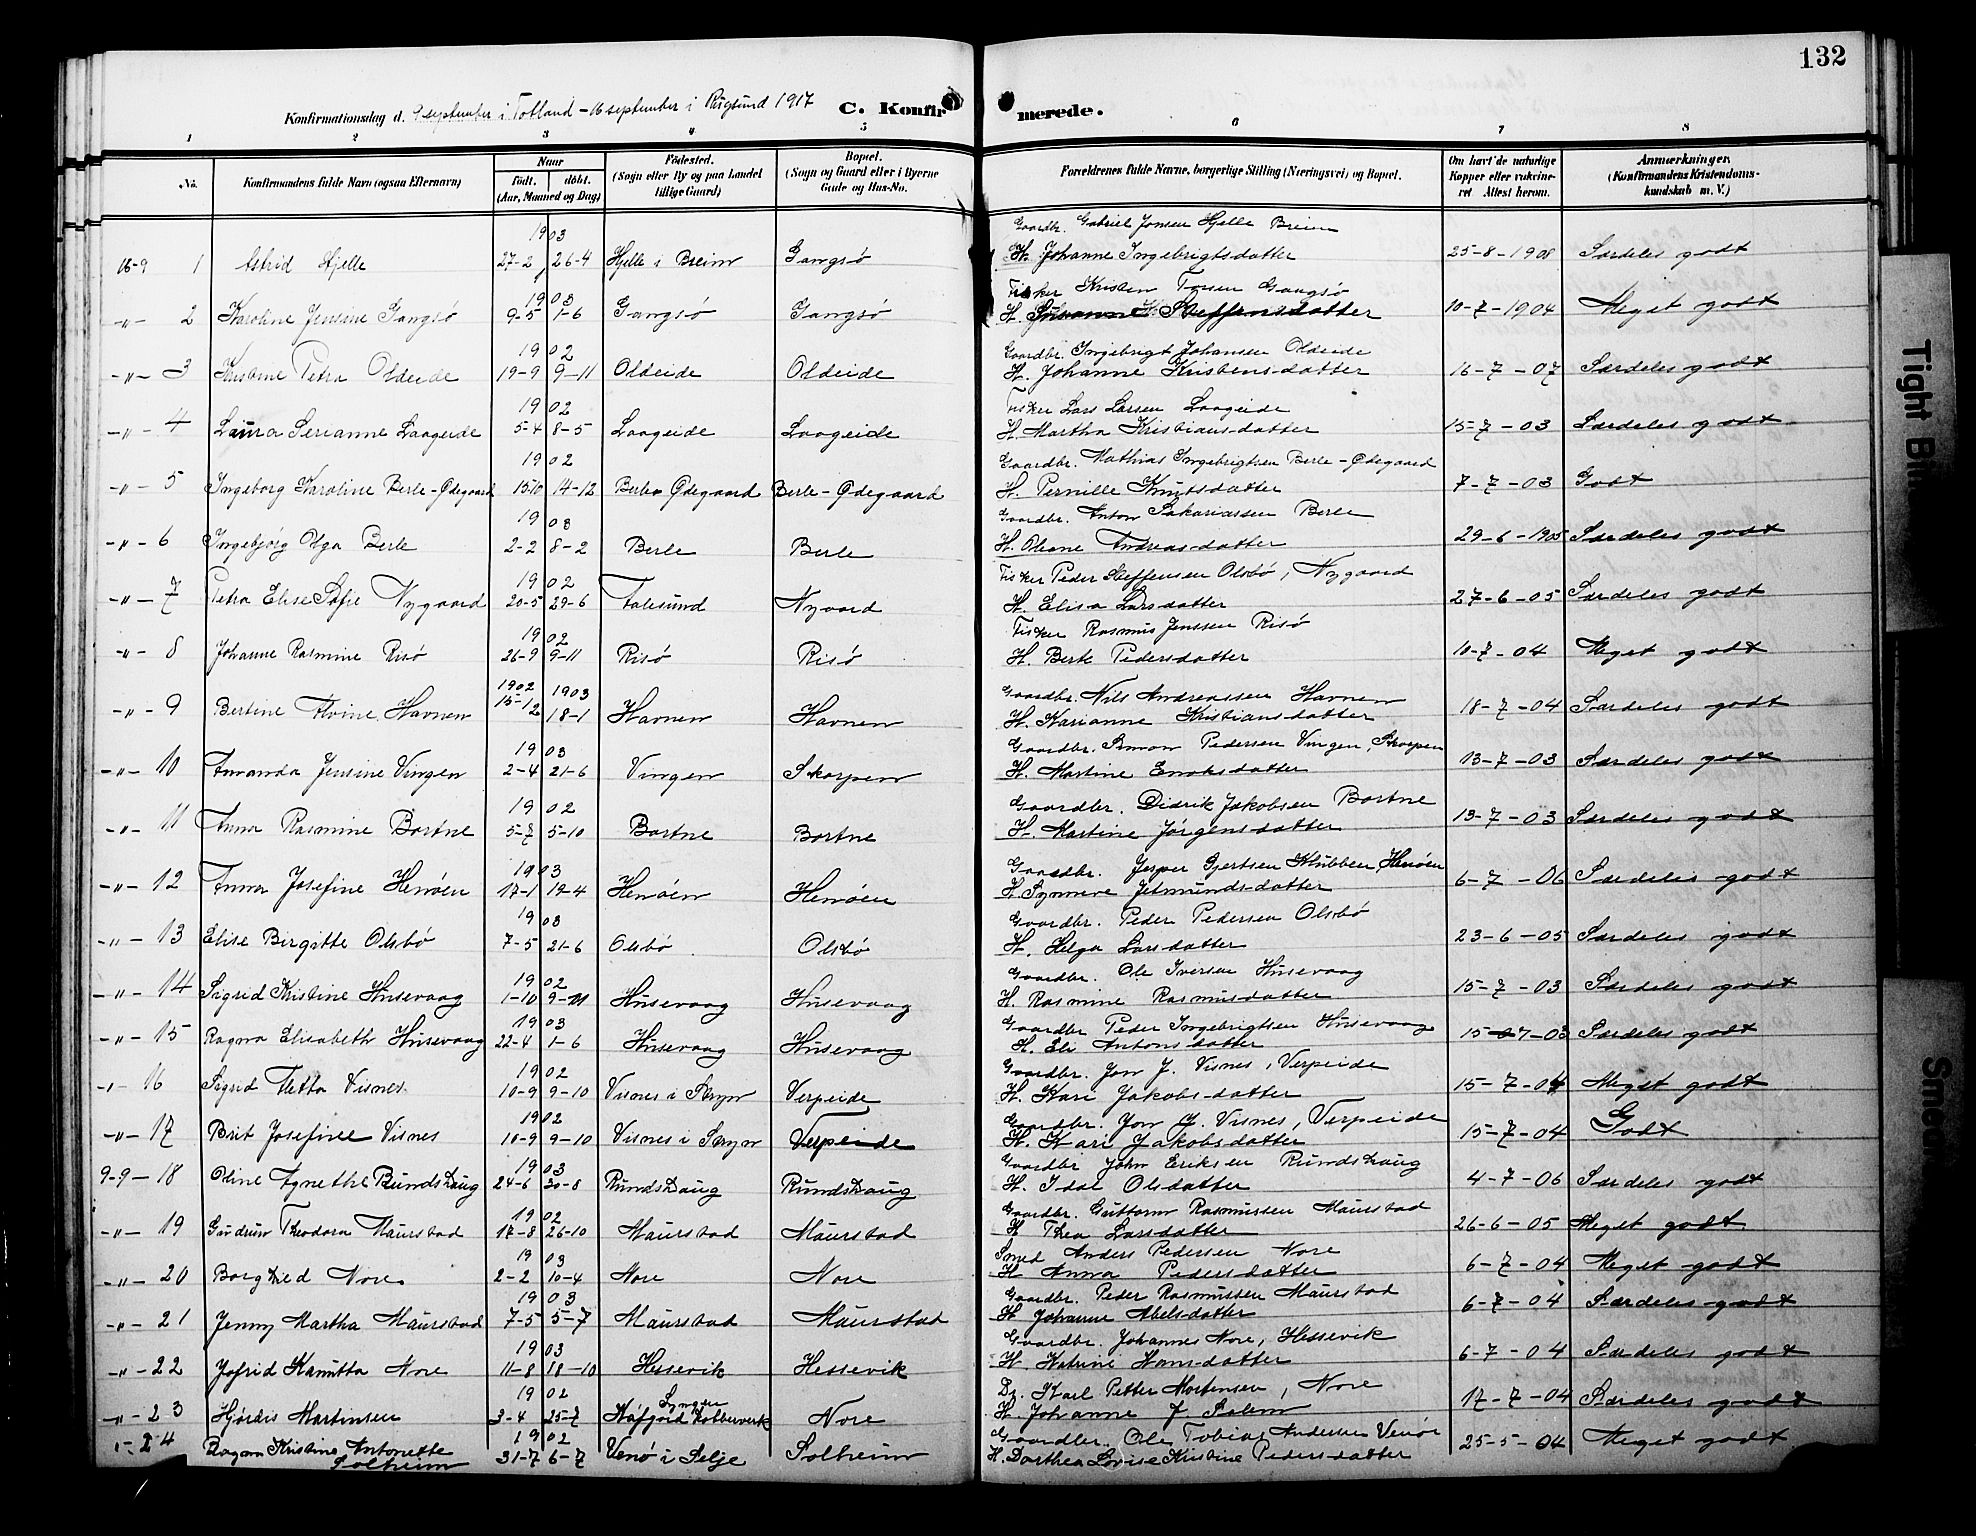 132
Konfirmationsdag d. 9 september i Totland – 16 september i Rugsund 1917 C. Konfirmerede.
1 2 3 4 5 6 7 8
No. Konfirmandens fulde Navn (ogsaa Efternavn) Naar født. døbt. (Aar, Maaned og Dag) Fødested. (Sogn eller By og paa Landet tillige Gaard) Bopæl. (Sogn og Gaard eller i Byerne Gade og Hus-No. Forældrenes fulde Navne, borgerlige Stilling (Næringsvei) og Bopæl. Om havt de naturlige Kopper eller vakcineret Attest herom. Anmærkninger. (Konfirmandens Kristendomskundskab m. V.)
1903 Gaardbr. Gabriel Jonsen Hjelle Breim
16-9 1 Astrid Hjelle 27-2 26-4 Hjelle i Breim Gangsø H. Johanne Ingebrigtsdatter 25-8-1908 Særdeles godt
1903 Fisker Kristen Gangsø
-"- 2 Karoline Jensine Gangsø 9-5 1-6 Gangsø Gangsø H. Steffensdatter 10-7-1904 Meget godt
1902 Gaardbr. Ingebrigt Johansen Oldeide
-"- 3 Kristine Petra Oldeide 19-9 9-11 Oldeide Oldeide H. Johanne Kristensdatter 16-7-07 Særdeles godt
1902 Fisker Lars Larsen Laageide
-"- 4 Laura Serianne Laageide 5-4 8-5 Laageide Laageide H. Martha Kristiansdatter 15-7-03 Særdeles godt
1902 Gaardbr. Mathias Ingebrigtsen Berle-Ødegaard
-"- 5 Ingeborg Karoline Berle-Ødegaard 15-10 14-12 Berle Ødegaard Berle-Ødegaard H. Pernille Knutsdatter 7-7-03 Godt
1903 Gaardbr. Anton Sakariassen Berle
-"- 6 Ingebjørg Olga Berle 2-2 8-2 Berle Berle H. Oleane Andreasdatter 29-6-1905 Særdeles godt
1902 Fisker Peder Steffensen Olsbø, Nygaard
-"- 7 Petra Elise Sofie Nygaard 20-5 29-6 Aalesund Nygaard H. Elisa Larsdatter 27-6-05 Særdeles godt
1902 Fisker Rasmus Jenssen Risø
-"- 8 Johanne Rasmine Risø 26-9 9-11 Risø Risø H. Berte Pedersdatter 10-7-04 Meget godt
1902 1903 Gaardbr. Nils Andreassen Havnen
-"- 9 Bertine Alvine Havnen 15-12 18-1 Havnen Havnen H. Karianne Kristiansdatter 18-7-04 Særdeles godt
1903 Gaardbr. Simon Pedersen Vingen, Skorpen
-"- 10 Amanda Jensine Vingen 2-4 21-6 Vingen Skorpen H. Martine Enoksdatter 13-7-03 Særdeles godt
1902 Gaardbr. Didrik Jakobsen Bortne
-"- 11 Anna Rasmine Bortne 5-7 5-10 Bortne Bortne H. Martine Jørgensdatter 13-7-03 Særdeles godt
1903 Gaardbr. Jesper Gjertsen Klubben, Henøen
-"- 12 Anna Josefine Henøen 17-1 19-4 Henøen Henøen H. Synneve Jetmundsdatter 6-7-06 Særdeles godt
1903 Gaardbr. Peder Pedersen Olsbø
-"- 13 Elise Birgitte Olsbø 7-5 21-6 Olsbø Olsbø H. Helga Larsdatter 23-6-05 Særdeles godt
1902 Gaardbr. Ole Iversen Husevaag
-"- 14 Sigrid Kristine Husevaag 1-10 9-11 Husevaag Husevaag H. Rasmine Rasmusdatter 15-7-03 Særdeles godt
1903 Gaardbr. Peder Ingebrigtsen Husevaag
-"- 15 Ragna Elisabeth Husevaag 22-4 1-6 Husevaag Husevaag H. Eli Antonsdatter 15-7-03 Særdeles godt
1902 Gaardbr. Jon J. Visnes, Verpeide
-"- 16 Sigrid Aletta Visnes 10-9 9-10 Visnes i Stryn Verpeide H. Kari Jakobsdatter 15-7-04 Meget godt
1902 Gaardbr. Jon J. Visnes, Verpeide
-"- 17 Brit Josefine Visnes 10-9 9-10 Visnes i Stryn Verpeide H. Kari Jakobsdatter 15-7-04 Godt
1903 Gaardbr John Eriksen Rundshaug
9-9-18 Oline Agnethe Rundshaug 24-6 30-8 Rundshaug Rundshaug H. Idae Olsdatter 4-7-06 Særdeles godt
1902 Gaardbr. Guttorm Rasmussen Maurstad
-"- 19 Gudrun Theodora Maurstad 17-8 26-10 Maurstad Maurstad H Thea Larsdatter 26-6-05 Meget godt
1903 Smed Anders Pedersen Nore
-"- 20 Borghild Nore 2-2 10-4 Nore Nore H Anna Pedersdatter 6-7-04 Meget godt
1903 Gaardbr. Peder Rasmussen Maurstad
-"- 21 Jenny Martha Maurstad 7-5 5-7 Maurstad Maurstad H Johanne Abelsdatter 6-7-04 Særdeles godt
1903 Gaardbr. Johannes Nore, Hessevik
-"- 22 Jofrid Kanutta Nore 11-8 18-10 Hessevik Hessevik H. Katrine Hansdatter 6-7-04 Særdeles godt
1902 Lyngen Dr. Karl Petter Mortensen, Nore
-"- 23 Hjørdis Martinsen 3-4 25-7 Kåfjord Kobberverk Nore H. Johanne J. Salem 17-7-04 Særdeles godt
1902 Gaardbr. Ole Tobias Andersen Venøi
24 Dagna Kristine Antonette Solheim 31-7 6-7 Venø i Selje Solheim H. Dorthea Lovise Kristine Pedersdatter 25-5-04 Meget godt
Tight Bin